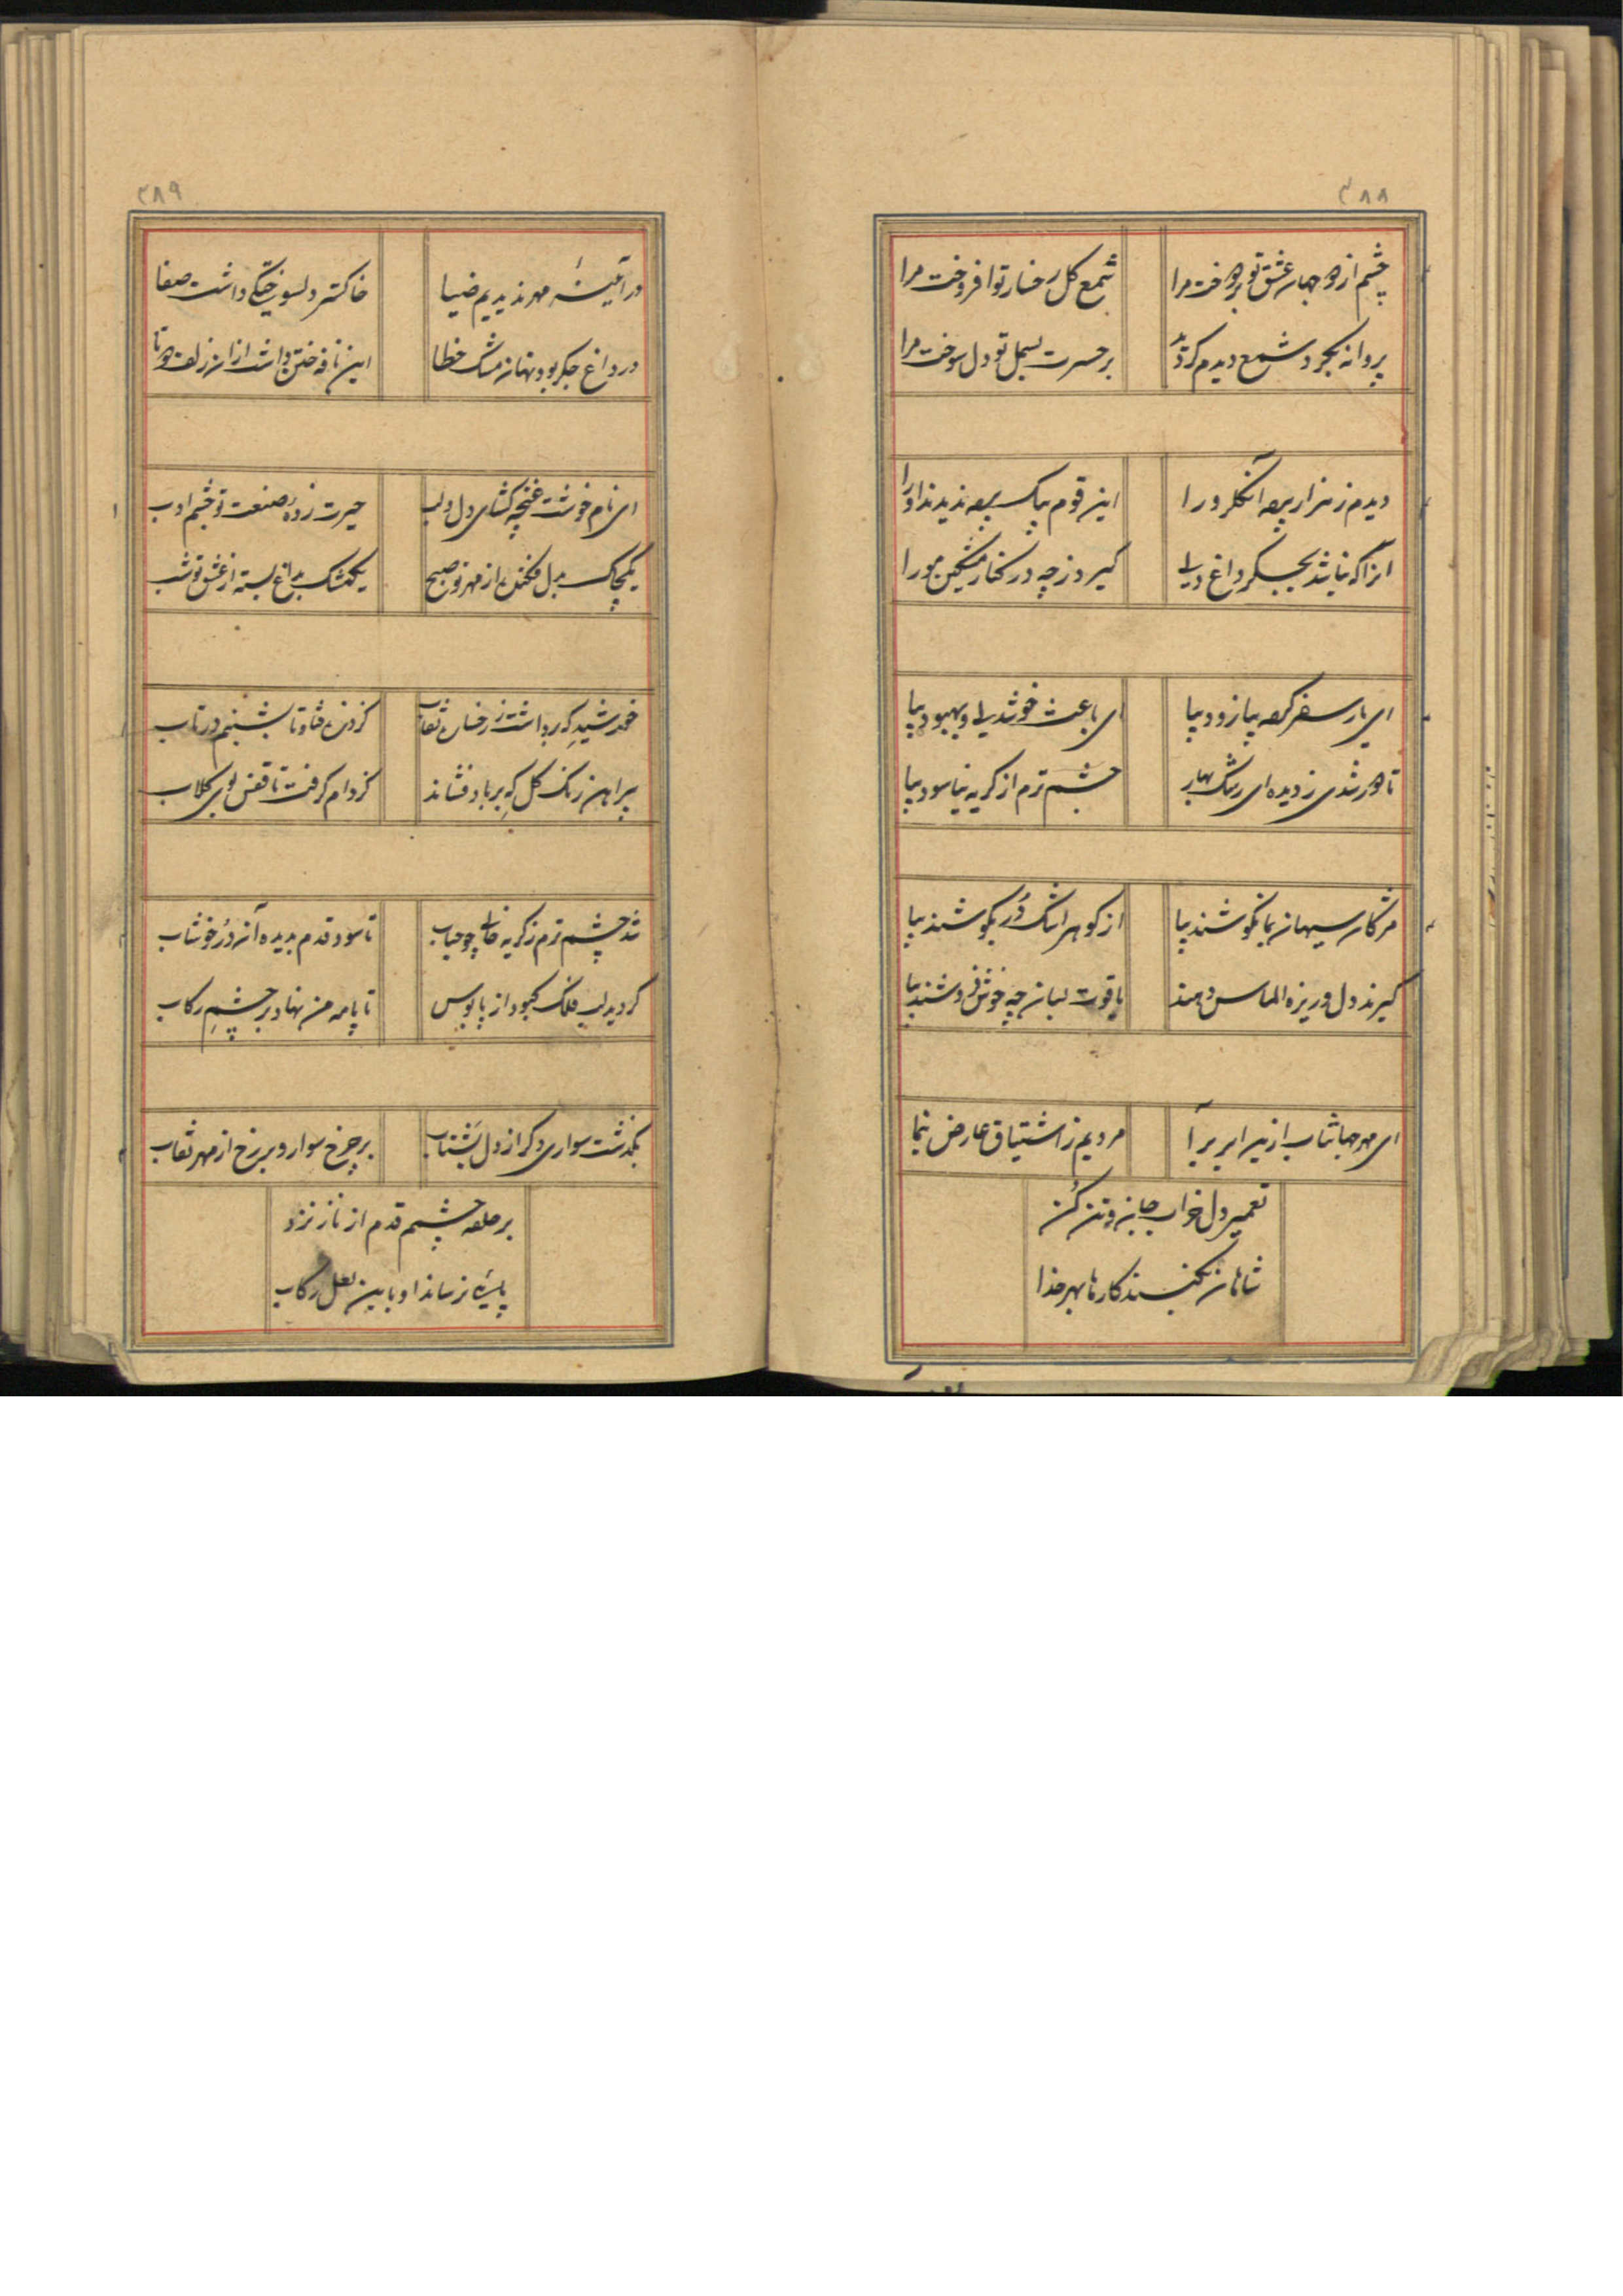 ۳۸۸
چشم از دو جهان عشق تو بردوخت مرا
شمع گل رخسار تو افروخت مرا
پروانه بگرد شمع دیدم گردید
بر حسرت بسمل تو دل سوخت مرا
دیدم ز هزار پرده آن گلرو را
این قوم بیک پرده ندیدند او را
آنرا که نباشد بجگر داغ دلی
گیرد ز چه در کنار مشکین مو را
ای یار سفر کرده بیا زود بیا
ای باعث خوشدلی و بهبود بیا
تا دور شدی ز دیده ای رشک بهار
چشم ترم از گریه نیاسود بیا
مژگان سیهان بما نکوشند بیا
از گوهر اشک دُر بگوشند بیا
گیرند دل و ریزه الماس دهند
یاقوت لبان چه خوش فروشند بیا
ای مهر جهانتاب ازین ابر برآ
مردیم ز اشتیاق عارض بنما
تعمیر دل خراب جان و تن کُن
شاهان نکنند کارها بهر خدا
۳۸۹
در آئینهٔ مهر ندیدیم ضیا
خاکستر دلسوختگی داشت صفا
در داغ جگر بود نهان مشک خطا
این نافه ختن داشت از آن زلف دوتا
ای نام خوشت غنچه گشای دل و لب
حیرت زده صنعت تو چشم ادب
یکچاک بدل فکنده از مهر تو صبح
یکمشک بداغ بسته از عشق تو شب
خورشید که برداشت ز رخسار نقاب
کردن فتاوتا شبنم در تاب
پیراهن رنگ گل که بر باد فشاند
کز دام گرفت تا قفس بوی گلاب
شد چشم ترم ز گریه خالی چو حباب
تا سود قدم بدیده آن دُر خوشاب
گردید لب فلک کبود از پابوس
تا پا مه من نهاد بر چشمِ رکاب
بگذشت سواری دگر از دل بشتاب
بر چرخ سوار و بر رخ از مهر نقاب
بر حلقه چشم قدم از ناز نزد
پائی نرساند او باین نعل رکاب